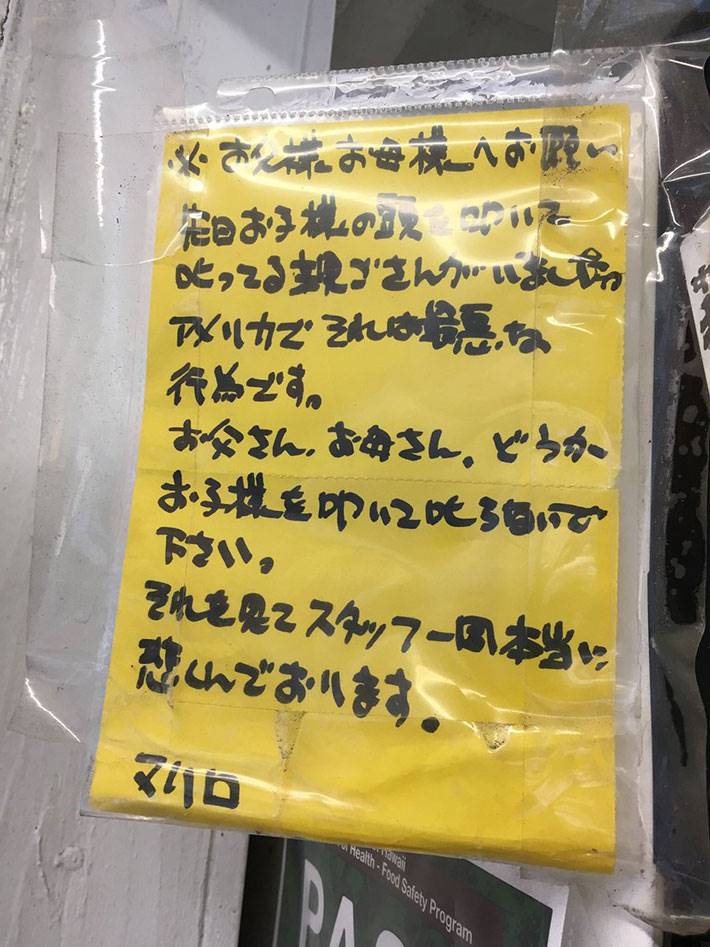 ※お父様お母様へお願い
先日お子様の頭を叩いて
叱ってる親ごさんがいました。
アメリカでそれは最悪な
行為です。
お父さん、お母さん、どうか
お子様を叩いて叱らないで
下さい。
それを見てスタッフ一同本当に
悲しんでおります。
マリロ
of Hawaii
of Health - Food Safety Program
PAS